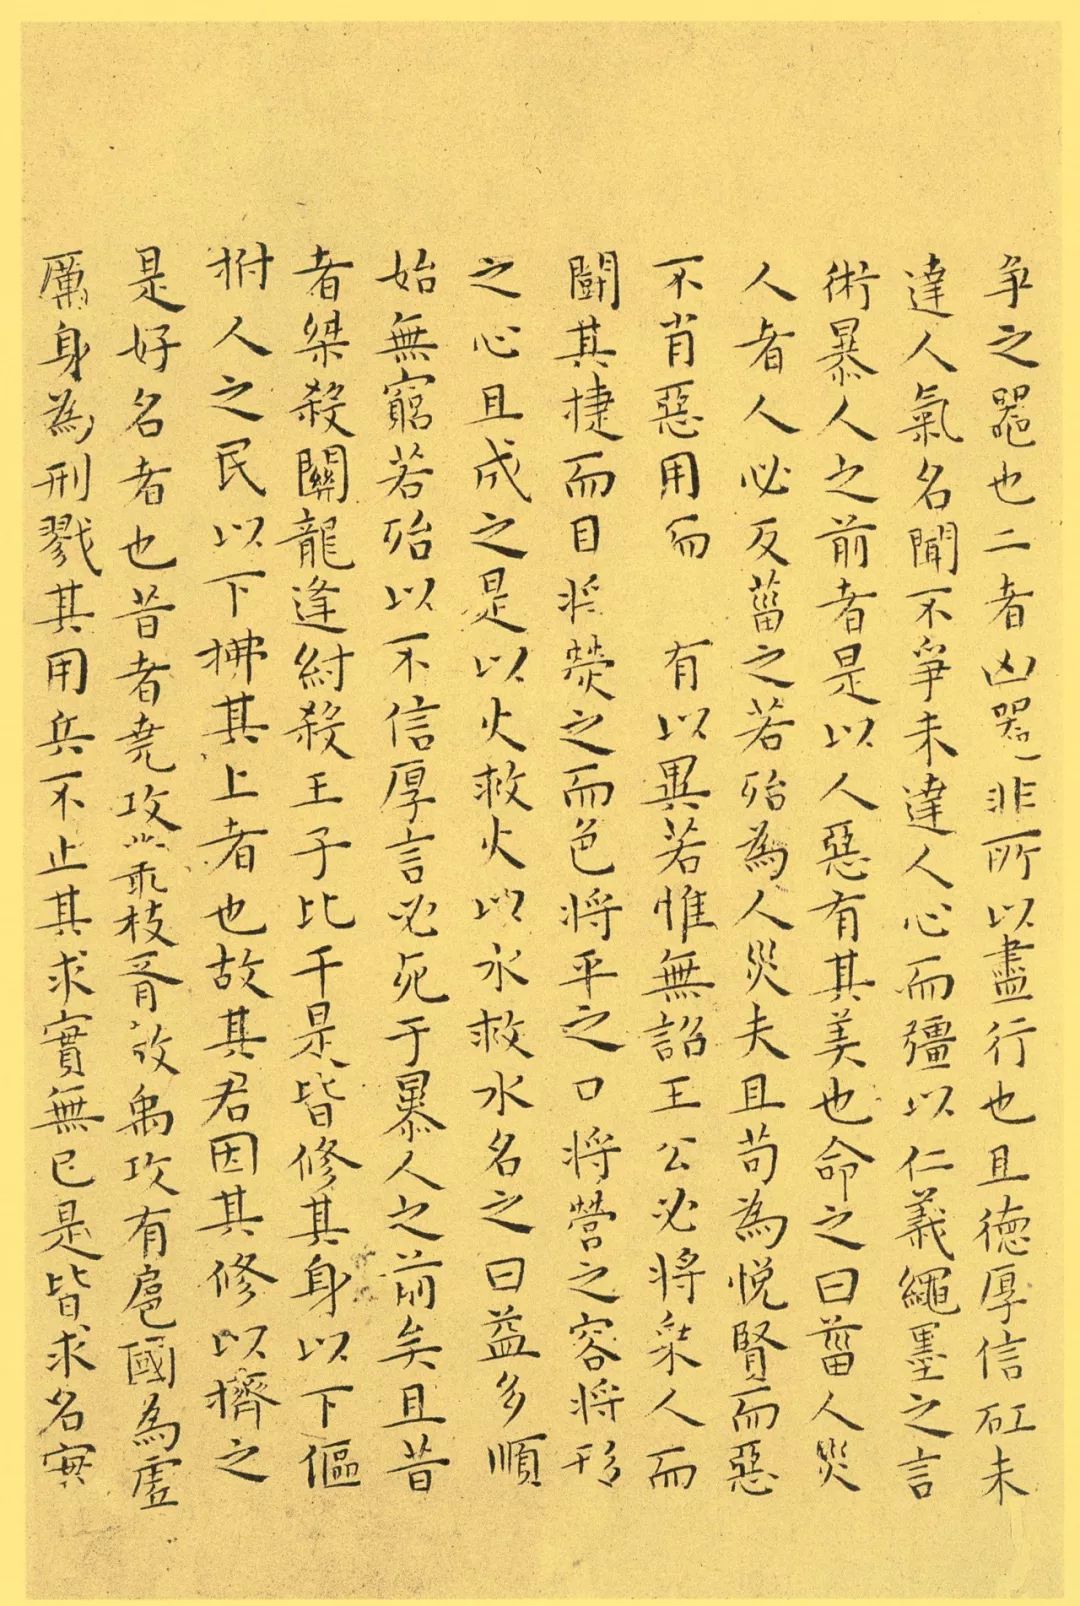 爭之器也二者凶器非所以盡行也且徳厚信矼未
達人氣名聞不爭未達人心而彊以仁義繩墨之言
術暴人之前者是以人惡有其美也命之曰菑人災
人者人必反菑之若殆為人災夫且苟為悅賢而惡
不肖惡用而 有以異若惟無詔王公必將乘人而
鬭其捷而目将熒之而色将平之口将營之容将形
之心且成之是以火救火以水救水名之曰益多順
始無窮若殆以不信厚言必死于暴人之前矣且昔
者桀殺關龍逄紂殺王子比干是皆修其身以下傴
拊人之民以下拂其上者也故其君因其修以擠之
是好名者也昔者堯攻叢枝胥敖禹攻有扈國為虛
厲身為刑戮其用兵不止其求實無已是皆求名實